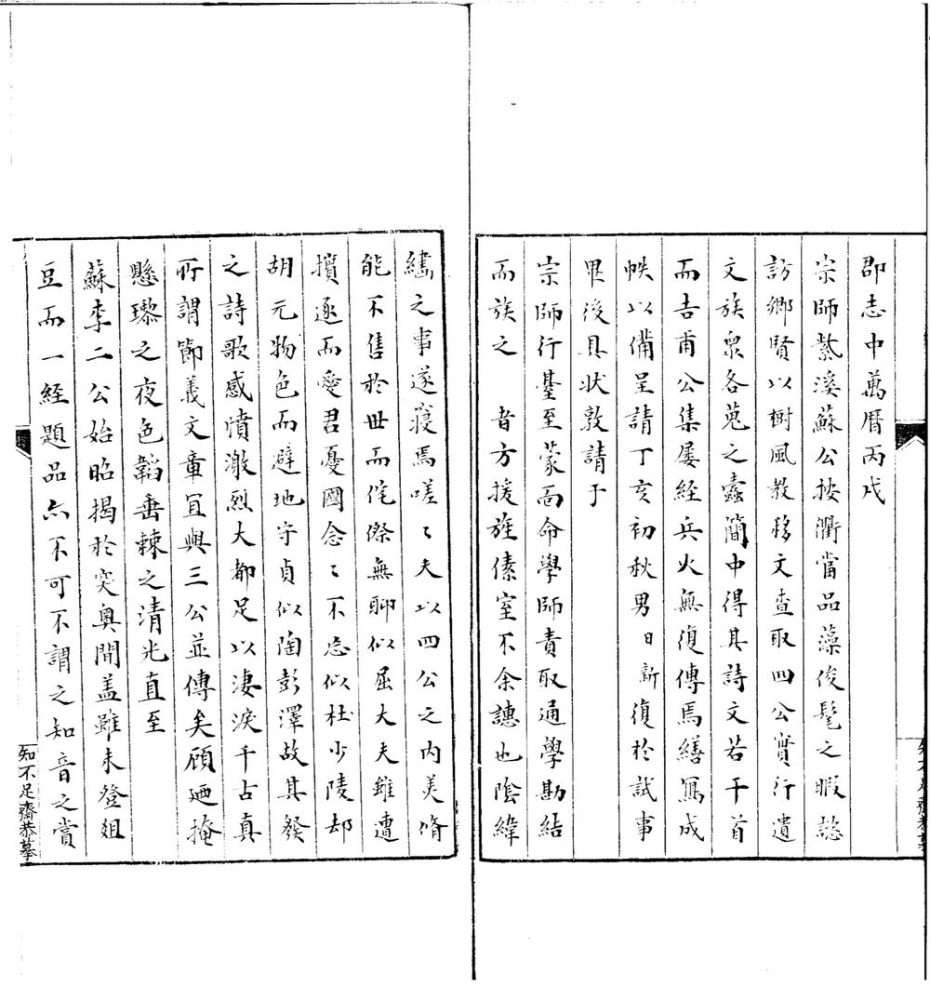 郡志中萬曆丙戌
崇師紫溪蘇公按衢當品藻俊髦之暇諮
訪鄉賢以樹風教移文查取四公實行遺
文族眾各蒐之蠹簡中得其詩文若干首
而吉甫公集屢經兵火無復傳焉繕寫成
帙以備呈請丁亥初秋男日新復於試事
畢後具状敦請于
宗師行臺至蒙面命學師責取通學勘結
而族之 者方援旌傃室不余讜也陰緯
繣之事遂寢焉嗟〻夫以四公之內美脩
能不售於世而侘傺無聊似屈大夫雖遭
擯逐而愛君憂國念〻不忘似杜少陵却
胡元物色而避地守貞似陶彭澤故其發
之詩歌感憤激烈大都足以淒淚千古真
所謂節義文章宜與三公並傳矣顧廼掩
懸瓈之夜色韜垂棘之清光直至
蘇李二公始昭揭於突奧間盖雖未登俎
豆而一經題品亦不可不謂之知音之賞
知不足齋恭摹